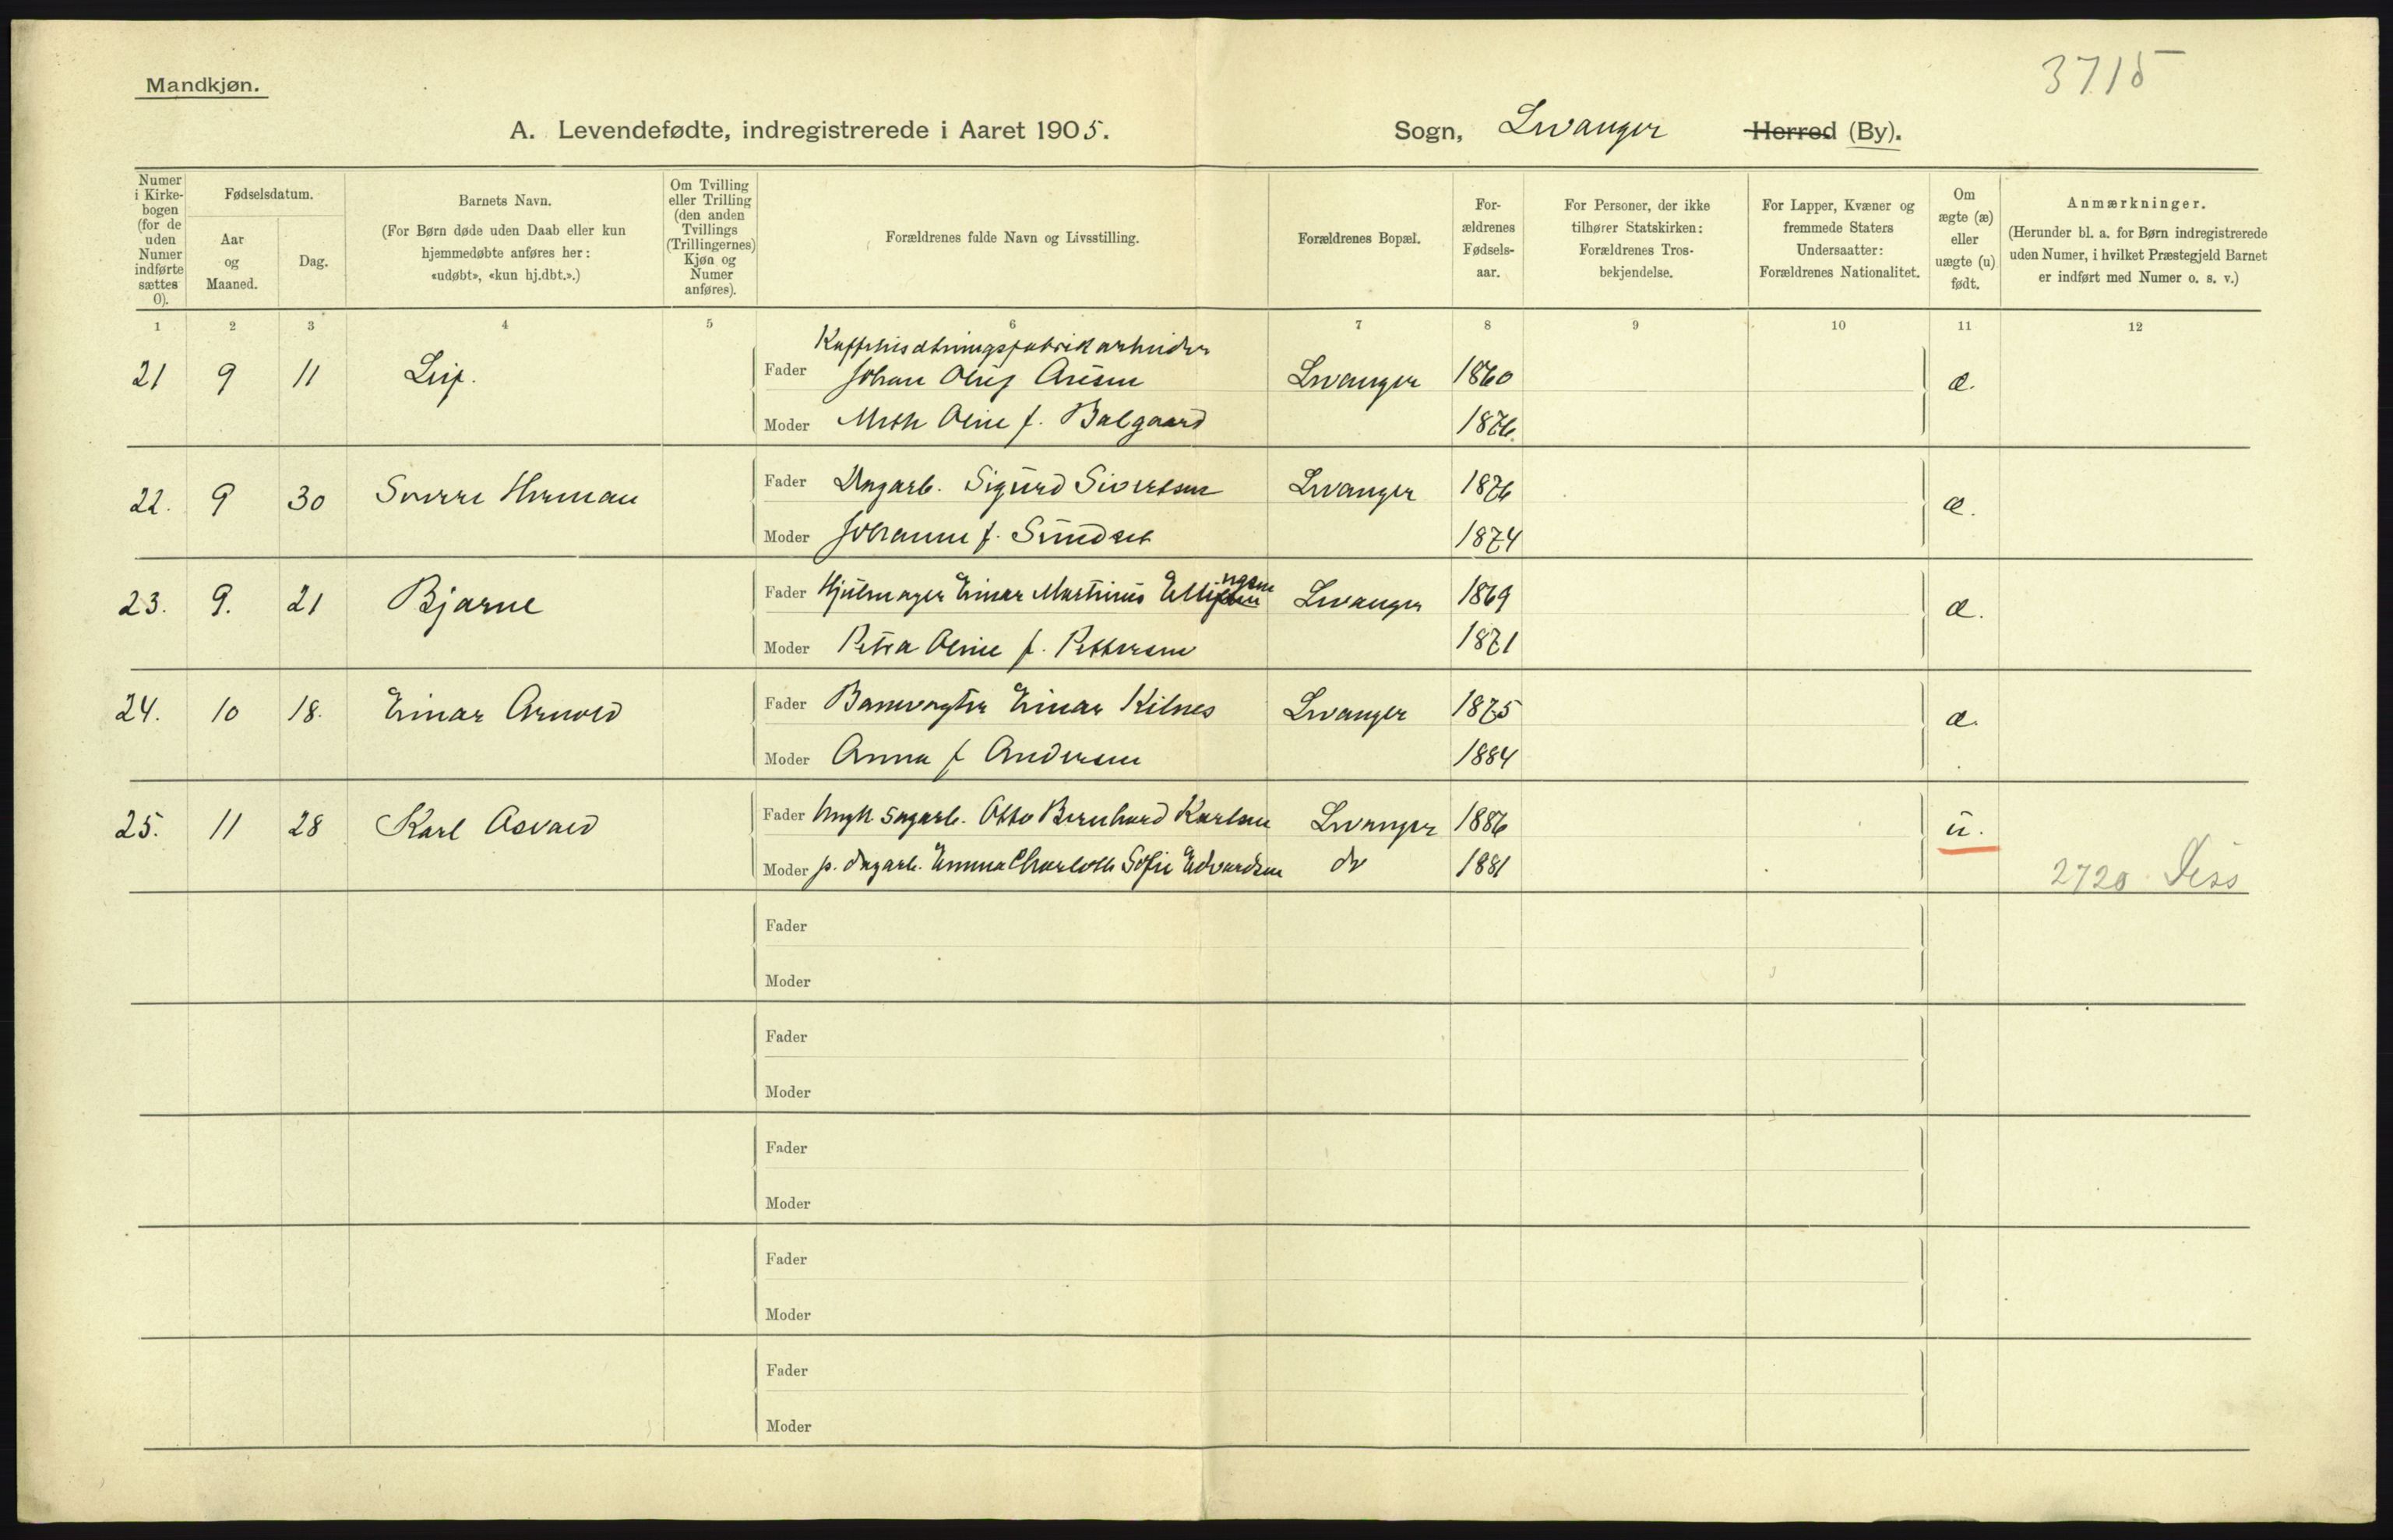 3715
Mandkjøn.
A. Levendefødte, indregistrerede i Aaret 1905. Sogn, Levanger Herred (By).
Numer i Kirkebogen (for de uden Numer indførte sættes 0).
Fødselsdatum.
Aar og Maaned.
Dag.
Barnets Navn.
(For Børn døde uden Daab eller kun hjemmedøbte anføres her: «udøbt», «kun hj.dbt.».)
Om Tvilling eller Trilling (den anden Tvillings (Trillingernes) Kjøn og Numer anføres).
Forældrenes fulde Navn og Livsstilling.
Forældrenes Bopæl.
Forældrenes Fødselsaar.
For Personer, der ikke tilhører Statskirken: Forældrenes Trosbekjendelse.
For Lapper, Kvæner og fremmede Staters Undersaatter: Forældrenes Nationalitet.
Om ægte (æ) eller uægte (u) født.
Anmærkninger.
(Herunder bl. a. for Børn indregistrerede uden Numer, i hvilket Præstegjeld Barnet er indført med Numer o. s. v.)
1 2 3 4 5 6 7 8 9 10 11 12
21 9 11 Leif. Fader Johan Oluf Levanger 1860 æ.
Moder Oline f. Balgaard 1876.
22. 9 30 Sverre Herman Fader Dagarb. Sigurd Sivertsen Levanger 1876 æ.
Moder Johanne f. Sundset 1874
23. 9. 21 Bjarne Fader Hjulmager Einar Martinius Ellingsen Levanger 1869 æ.
Moder Petra Oline f. Pettersen 1871
24. 10 18. Einar Arnold Fader Banevogter Einar Kilnes Levanger 1875 æ.
Moder Anna f Andersen 1884
25. 11 28 Karl Osvald Fader Ungk. sagarb. Otto Bernhard Karlsen Levanger 1886 u.
Moder p. dagarb. Emma Charlotte Sofie Edvardsen do 1881
2720
Fader
Moder
Fader
Moder
Fader
Moder
Fader
Moder
Fader
Moder